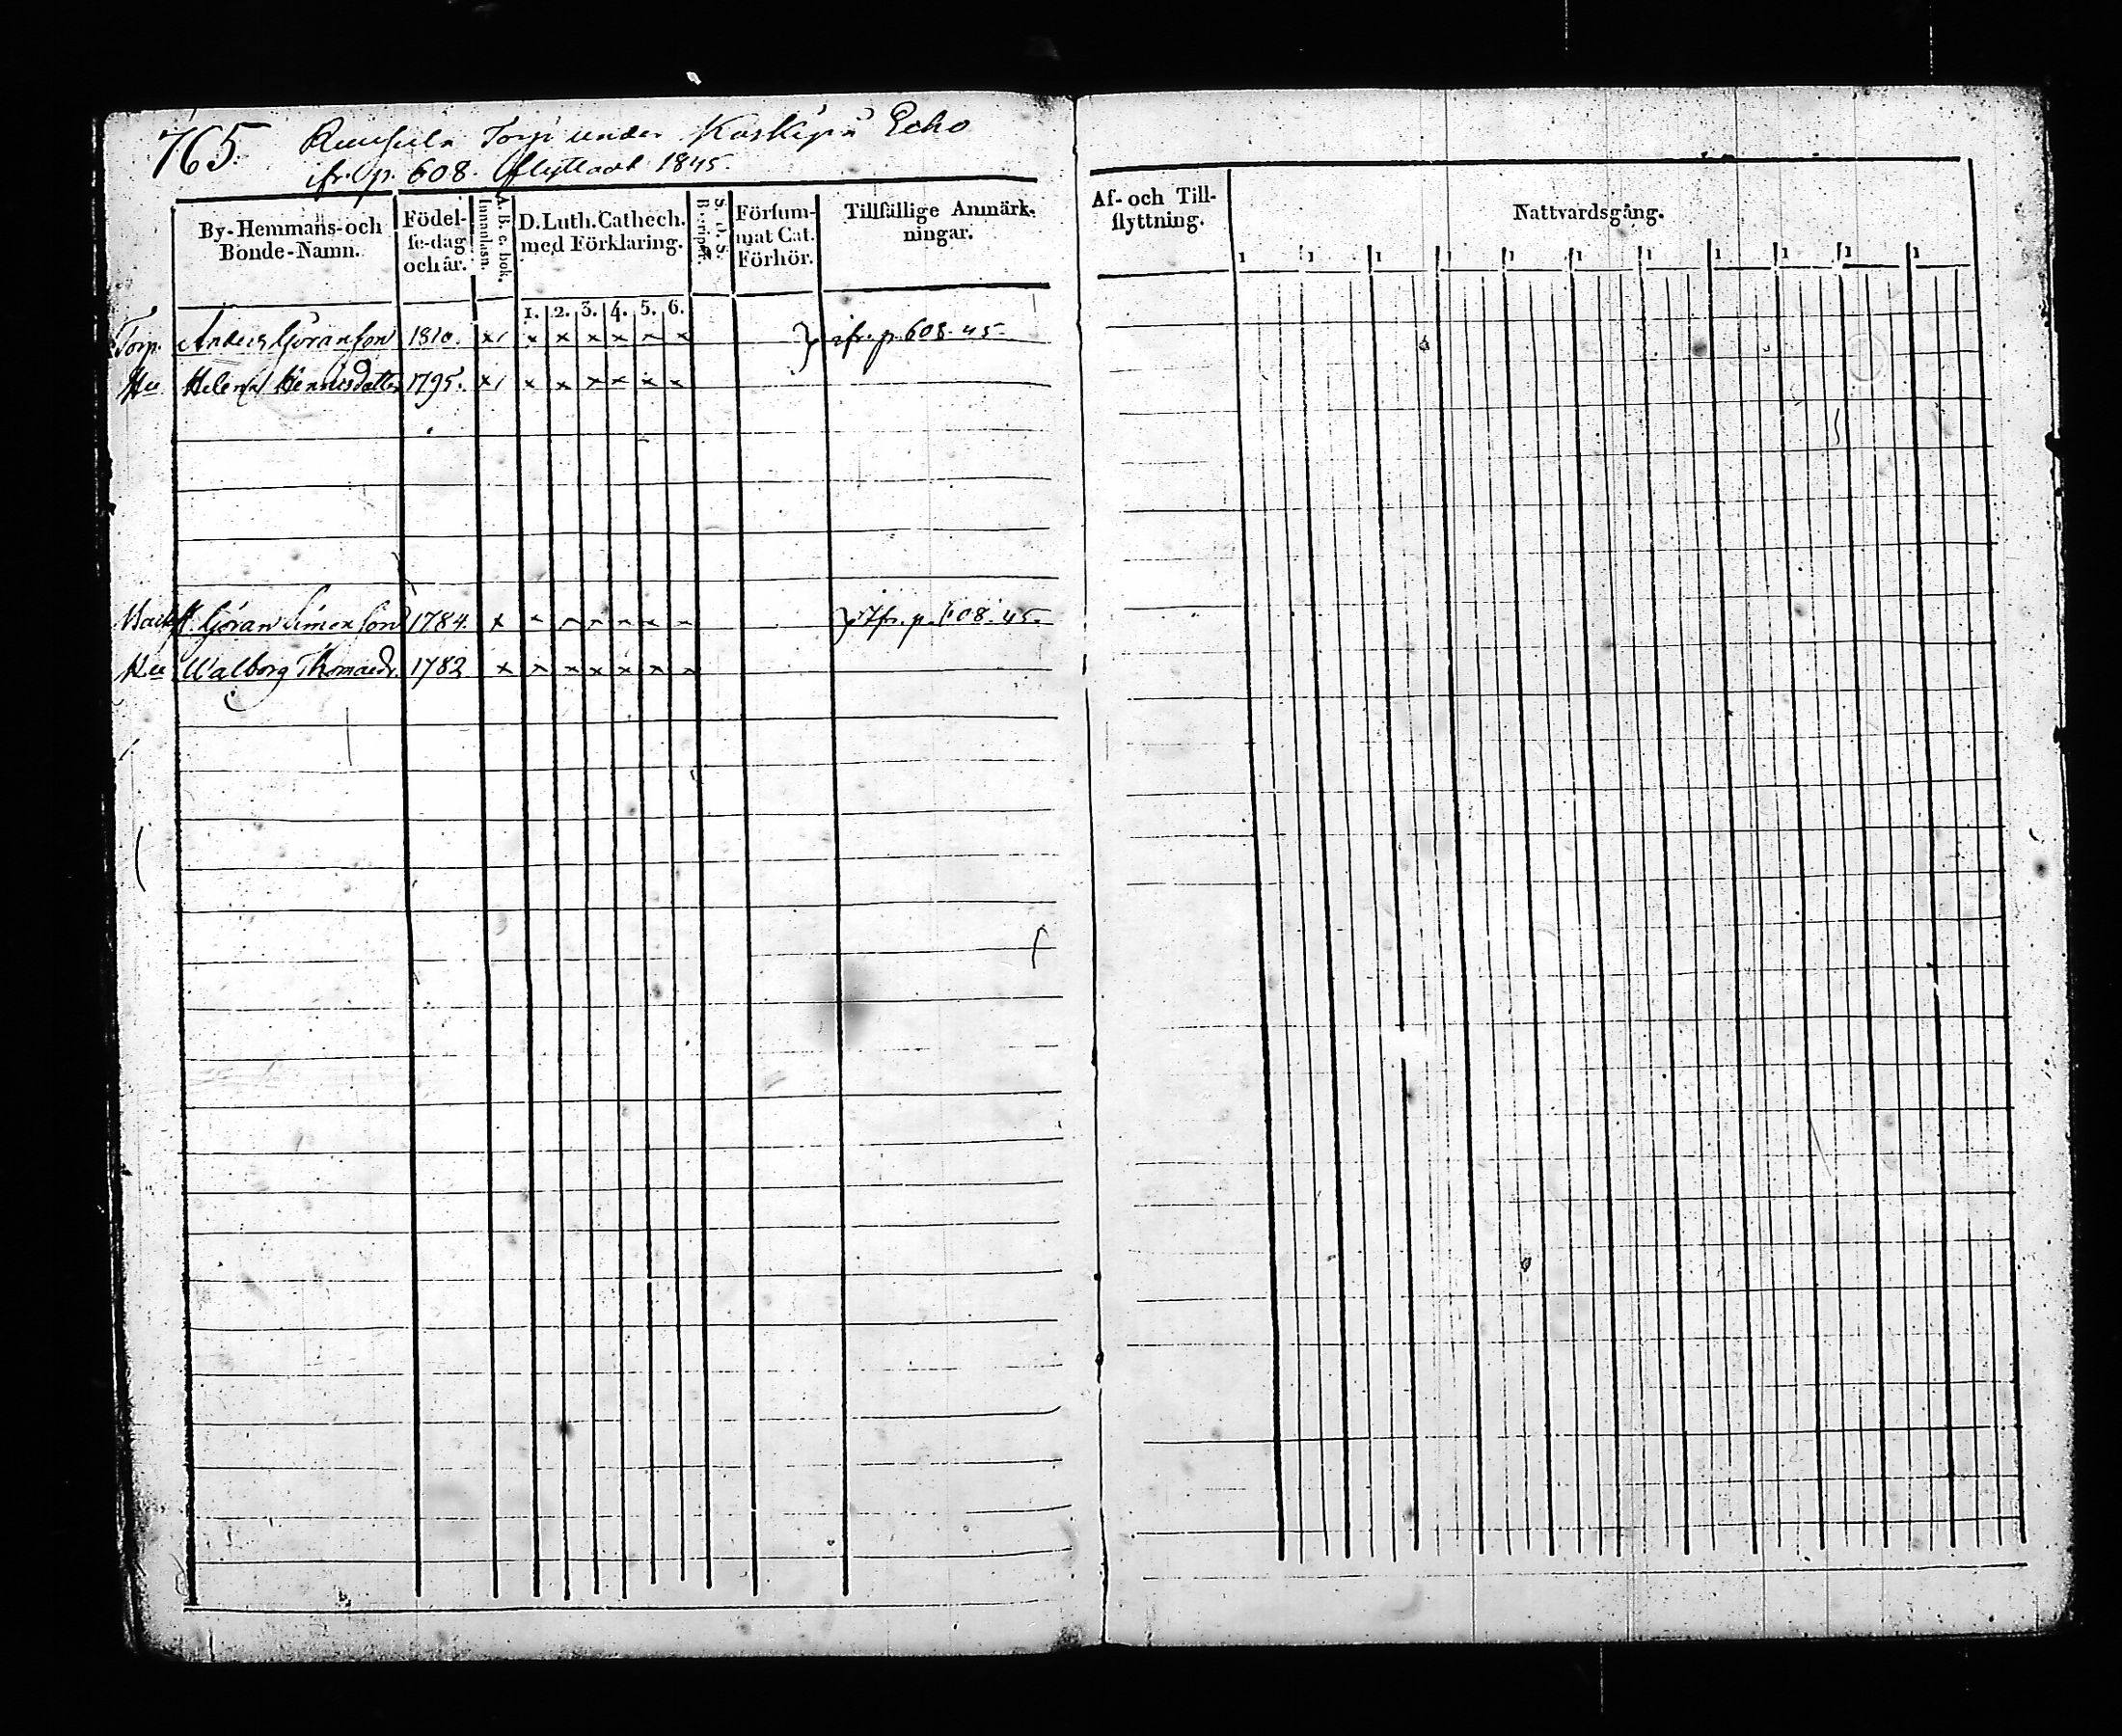 765. Torp under Koskipä Echo
ifr. p. 608. flyttadt 1845.
By-Hemmans-och Bonde-Namn.
Födel-se-dag och år.
A. B. c. bok. Innanläsn.
D. Luth. Cathech. med Förklaring.
1. 2. 3. 4. 5. 6.
Försum-mat Cat. Förhör.
Tillfällige Anmärk-ningar.
Af- och Till-flyttning.
Nattvardsgång.
1 1 1 1 1 1 1 1 1 1 1
Torp. Anders Göransson 1810. x/ x x x x x x } ifr. p. 608. 45.
Hu Helena Hennicsdotter 1795. x/ x x x x x x
Göran Simonsson 1784. x x x x x x x } ifr. p. 608. 45.
Hu Walborg Thomasdr. 1782 x x x x x x x